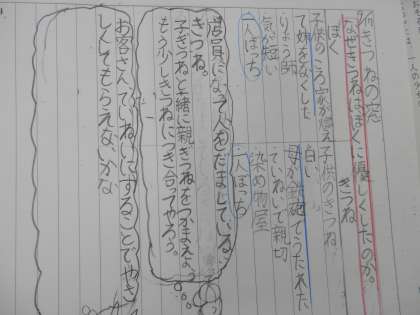 きつねの窓
なぜきつねはぼくに優しくしたのか。
ぼく
きつね
子供のころ家が燃え
て妹をなくした
りょう師
気が短い
一人ぼっち
子供のきつね
白い
母が鉄砲でうたれた
ていねいで親切
染め物屋
一人ぼっち
店員になって人をだましているな
きつね。
子ぎつねと一緒に親ぎつねをつかまえよう
もう少しきつねにつき合ってやろう。
お客さん、ていねいにすることでやさ
しくしてもらえないかな